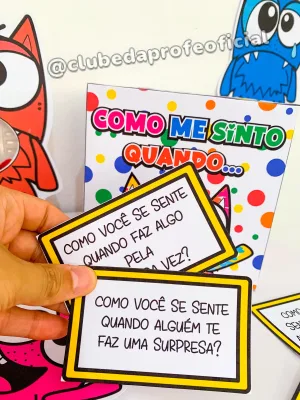 @clubedaprofeoficial
COMO ME SINTO
QUANDO...
COMO VOCÊ SE SENTE
QUANDO FAZ ALGO
PELA
VEZ?
COMO VOCÊ SE SENTE
QUANDO ALGUÉM TE
FAZ UMA SURPRESA?
COMO